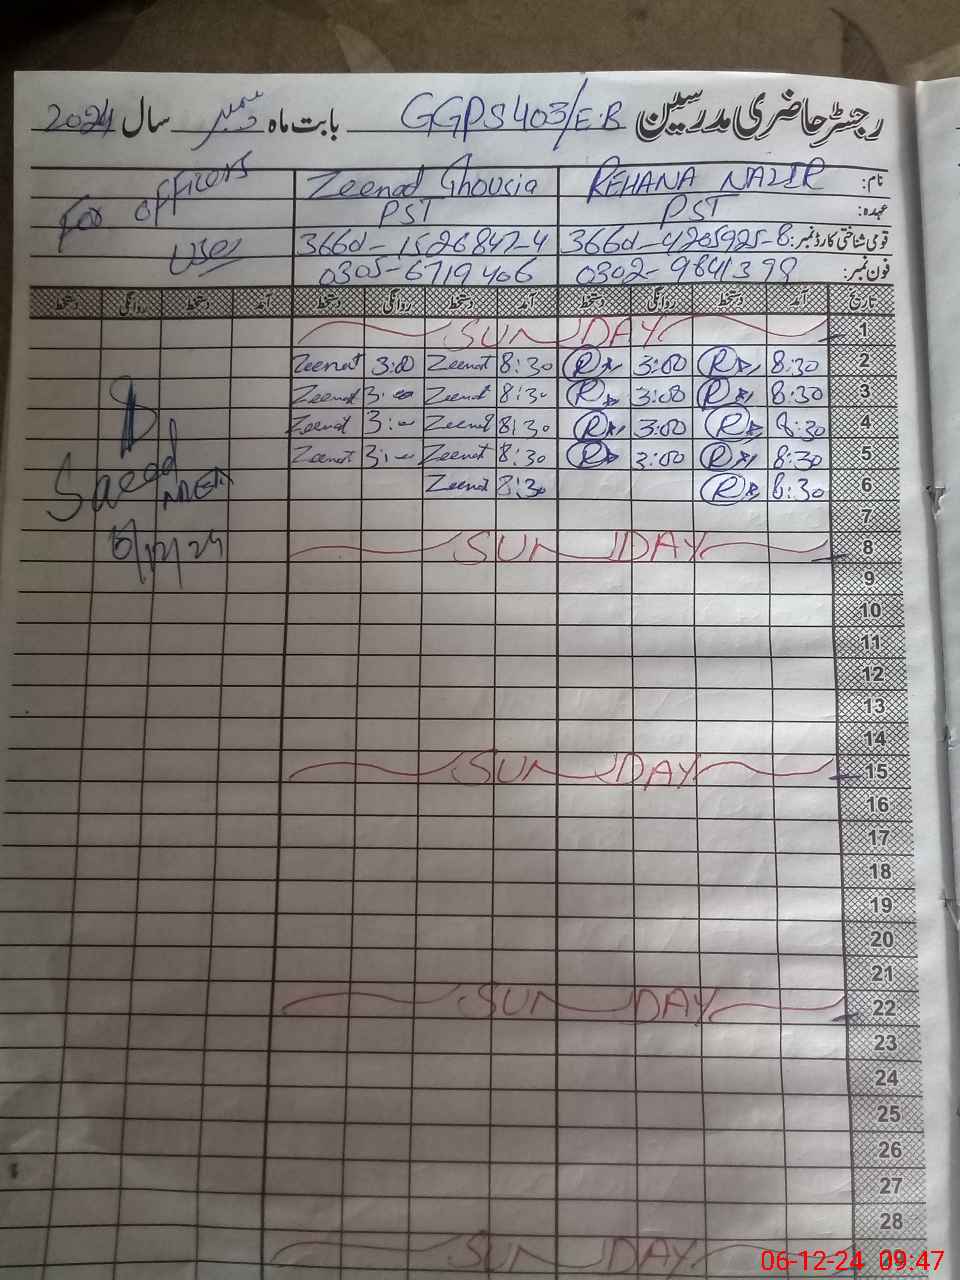 رجسٹر حاضری مدرسین GGPS 403/E.B بابت ماہ دسمبر سال 2024
نام: REHANA NAZIR Zeenat Ghousia For officers
عہدہ: PST PST
قومی شناختی کارڈ نمبر: 36601-4205925-8 36601-1526847-4 Use
فون نمبر: 0302-9841398 0305-6719406
تاریخ آمد دستخط روانگی دستخط آمد دستخط روانگی دستخط آمد دستخط روانگی دستخط
1 SUNDAY
2 8:30 R 3:00 R 8:30 Zeenat 3:00 Zeenat
3 8:30 R 3:00 R 8:30 Zeenat 3:00 Zeenat
4 8:30 R 3:00 R 8:30 Zeenat 3:00 Zeenat
5 8:30 R 3:00 R 8:30 Zeenat 3:00 Zeenat
6 8:30 R 8:30 Zeenat
Saeed
MEA
7
6/12/24
8 SUNDAY
9
10
11
12
13
14
15 SUNDAY
16
17
18
19
20
21
22 SUNDAY
23
24
25
26
27
28
SUNDAY
06-12-24 09:47